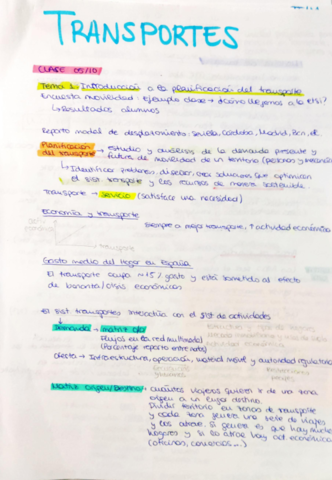 TRANSPORTES
CLASE 05/10
Tema 1: Introducción a la planificación del transporte
Encuesta movilidad: ejemplo clase → ¿Cómo llegamos a la
↳ Resultados alumnos
Reparto modal de desplazamiento, Sevilla, Córdoba, Madrid, Bcn,
Planificación → estudio y análisis de la demanda presente y
del transporte futura de movilidad de un territorio (personas y
↳ Identificar problemas, disponer, soluciones que optimicen
el sist. transporte y los equipos de manera sostenible
Transporte → Servicio (satisface una necesidad)
Economía y transporte
Siempre a mejor transporte, ↑ actividad económica
Gasto medio del Hogar en España
El transporte ocupa ~15% gasto y está sometido al efecto
de bonanza/crisis económicas
El sist transportes interactúa con el sist de actividades
↳ Demanda → matriz o/d
Flujos en la red multimodal
(Porcentaje reparto entre modos)
oferta → Infraestructura, operación, material móvil y autoridad reguladora
Matriz Origen/Destino → cuántos viajeros quieren ir de una zona
origen a un lugar destino.
Dividir territorio en zonas de transporte
y cada zona genera una serie de viajes
y los atrae. Si genera es que hay muchos
hogares y si los atrae hay act económica
(oficinas, comercios...)